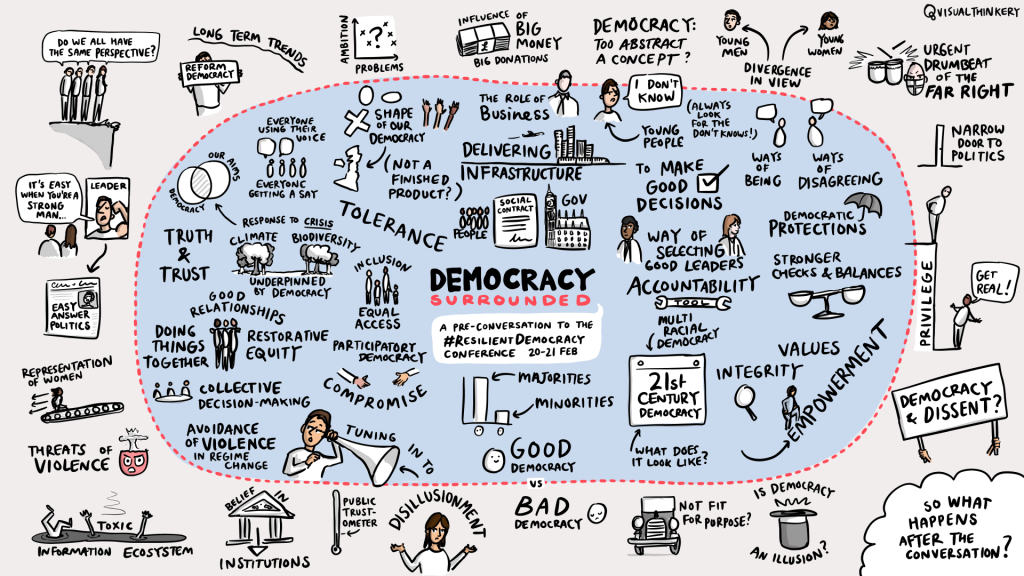 @VISUALTHINKERY
DO WE ALL HAVE
THE SAME PERSPECTIVE?
LONG TERM TRENDS
REFORM
DEMOCRACY
AMBITION
?
PROBLEMS
INFLUENCE OF
BIG
MONEY
BIG DONATIONS
£
DEMOCRACY:
TOO ABSTRACT
A CONCEPT?
YOUNG
MEN
YOUNG
WOMEN
DIVERGENCE
IN VIEW
URGENT
DRUMBEAT
OF THE
FAR RIGHT
EVERYONE
USING THEIR
VOICE
EVERYONE
GETTING A SAY
SHAPE
OF OUR
DEMOCRACY
(NOT A
FINISHED
PRODUCT?)
THE ROLE OF
BUSINESS
I DON'T
KNOW
YOUNG
PEOPLE
(ALWAYS
LOOK
FOR THE
DON'T KNOWS!)
WAYS
OF
BEING
WAYS
OF
DISAGREEING
NARROW
DOOR TO
POLITICS
OUR AIMS
DEMOCRACY
DELIVERING
INFRASTRUCTURE
TO MAKE
GOOD
DECISIONS
IT'S EASY
WHEN YOU'RE A
STRONG
MAN...
LEADER
TRUTH
&
TRUST
RESPONSE TO CRISIS
CLIMATE
BIODIVERSITY
UNDERPINNED
BY DEMOCRACY
TOLERANCE
PEOPLE
SOCIAL
CONTRACT
GOV
WAY OF
SELECTING
GOOD LEADERS
DEMOCRATIC
PROTECTIONS
STRONGER
CHECKS & BALANCES
PRIVILEGE
GET
REAL!
EASY
ANSWER
POLITICS
INCLUSION
EQUAL
ACCESS
DEMOCRACY
SURROUNDED
A PRE-CONVERSATION TO THE
#RESILIENTDEMOCRACY
CONFERENCE 20-21 FEB
ACCOUNTABILITY
TOOL
MULTI
RACIAL
DEMOCRACY
GOOD
RELATIONSHIPS
DOING
THINGS
TOGETHER
RESTORATIVE
EQUITY
PARTICIPATORY
DEMOCRACY
COMPROMISE
MAJORITIES
MINORITIES
21ST
CENTURY
DEMOCRACY
WHAT DOES
IT LOOK LIKE?
VALUES
INTEGRITY
EMPOWERMENT
REPRESENTATION
OF WOMEN
COLLECTIVE
DECISION-MAKING
DEMOCRACY
& DISSENT?
THREATS OF
VIOLENCE
AVOIDANCE
OF VIOLENCE
IN REGIME
CHANGE
TUNING IN TO
DISILLUSIONMENT
GOOD
DEMOCRACY
VS
BAD
DEMOCRACY
TOXIC
INFORMATION ECOSYSTEM
BELIEF IN
INSTITUTIONS
PUBLIC
TRUST-
OMETER
NOT FIT
FOR PURPOSE?
IS DEMOCRACY
AN ILLUSION?
SO WHAT
HAPPENS
AFTER THE
CONVERSATION?